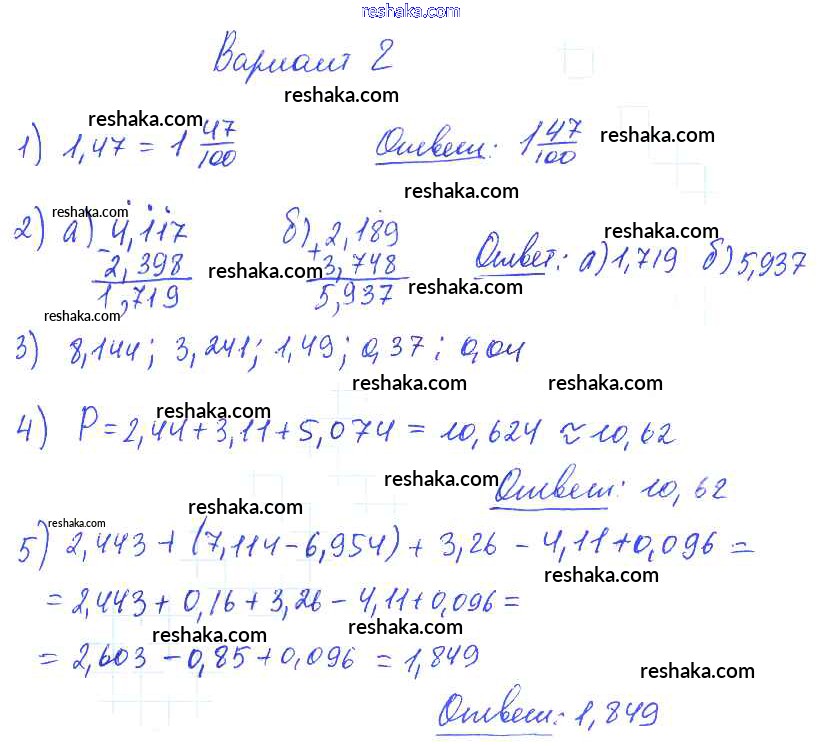 reshaka.com
Вариант 2
reshaka.com
reshaka.com reshaka.com
1) 1,47 = 1 47/100 Ответ: 1 47/100
reshaka.com
reshaka.com reshaka.com
2) а) 4,117 б) 2,189
- 2,398 + 3,748 Ответ: а) 1,719 б) 5,937
reshaka.com
1,719 5,937 reshaka.com
reshaka.com
3) 8,144; 3,241; 1,49; 0,37; 0,04
reshaka.com reshaka.com
reshaka.com
4) P = 2,44 + 3,11 + 5,074 = 10,624 ≈ 10,62
reshaka.com
Ответ: 10,62
reshaka.com
reshaka.com
5) 2,443 + (7,114 - 6,954) + 3,26 - 4,11 + 0,096 =
reshaka.com
= 2,443 + 0,16 + 3,26 - 4,11 + 0,096 =
reshaka.com reshaka.com
= 2,603 - 0,85 + 0,096 = 1,849
reshaka.com
Ответ: 1,849